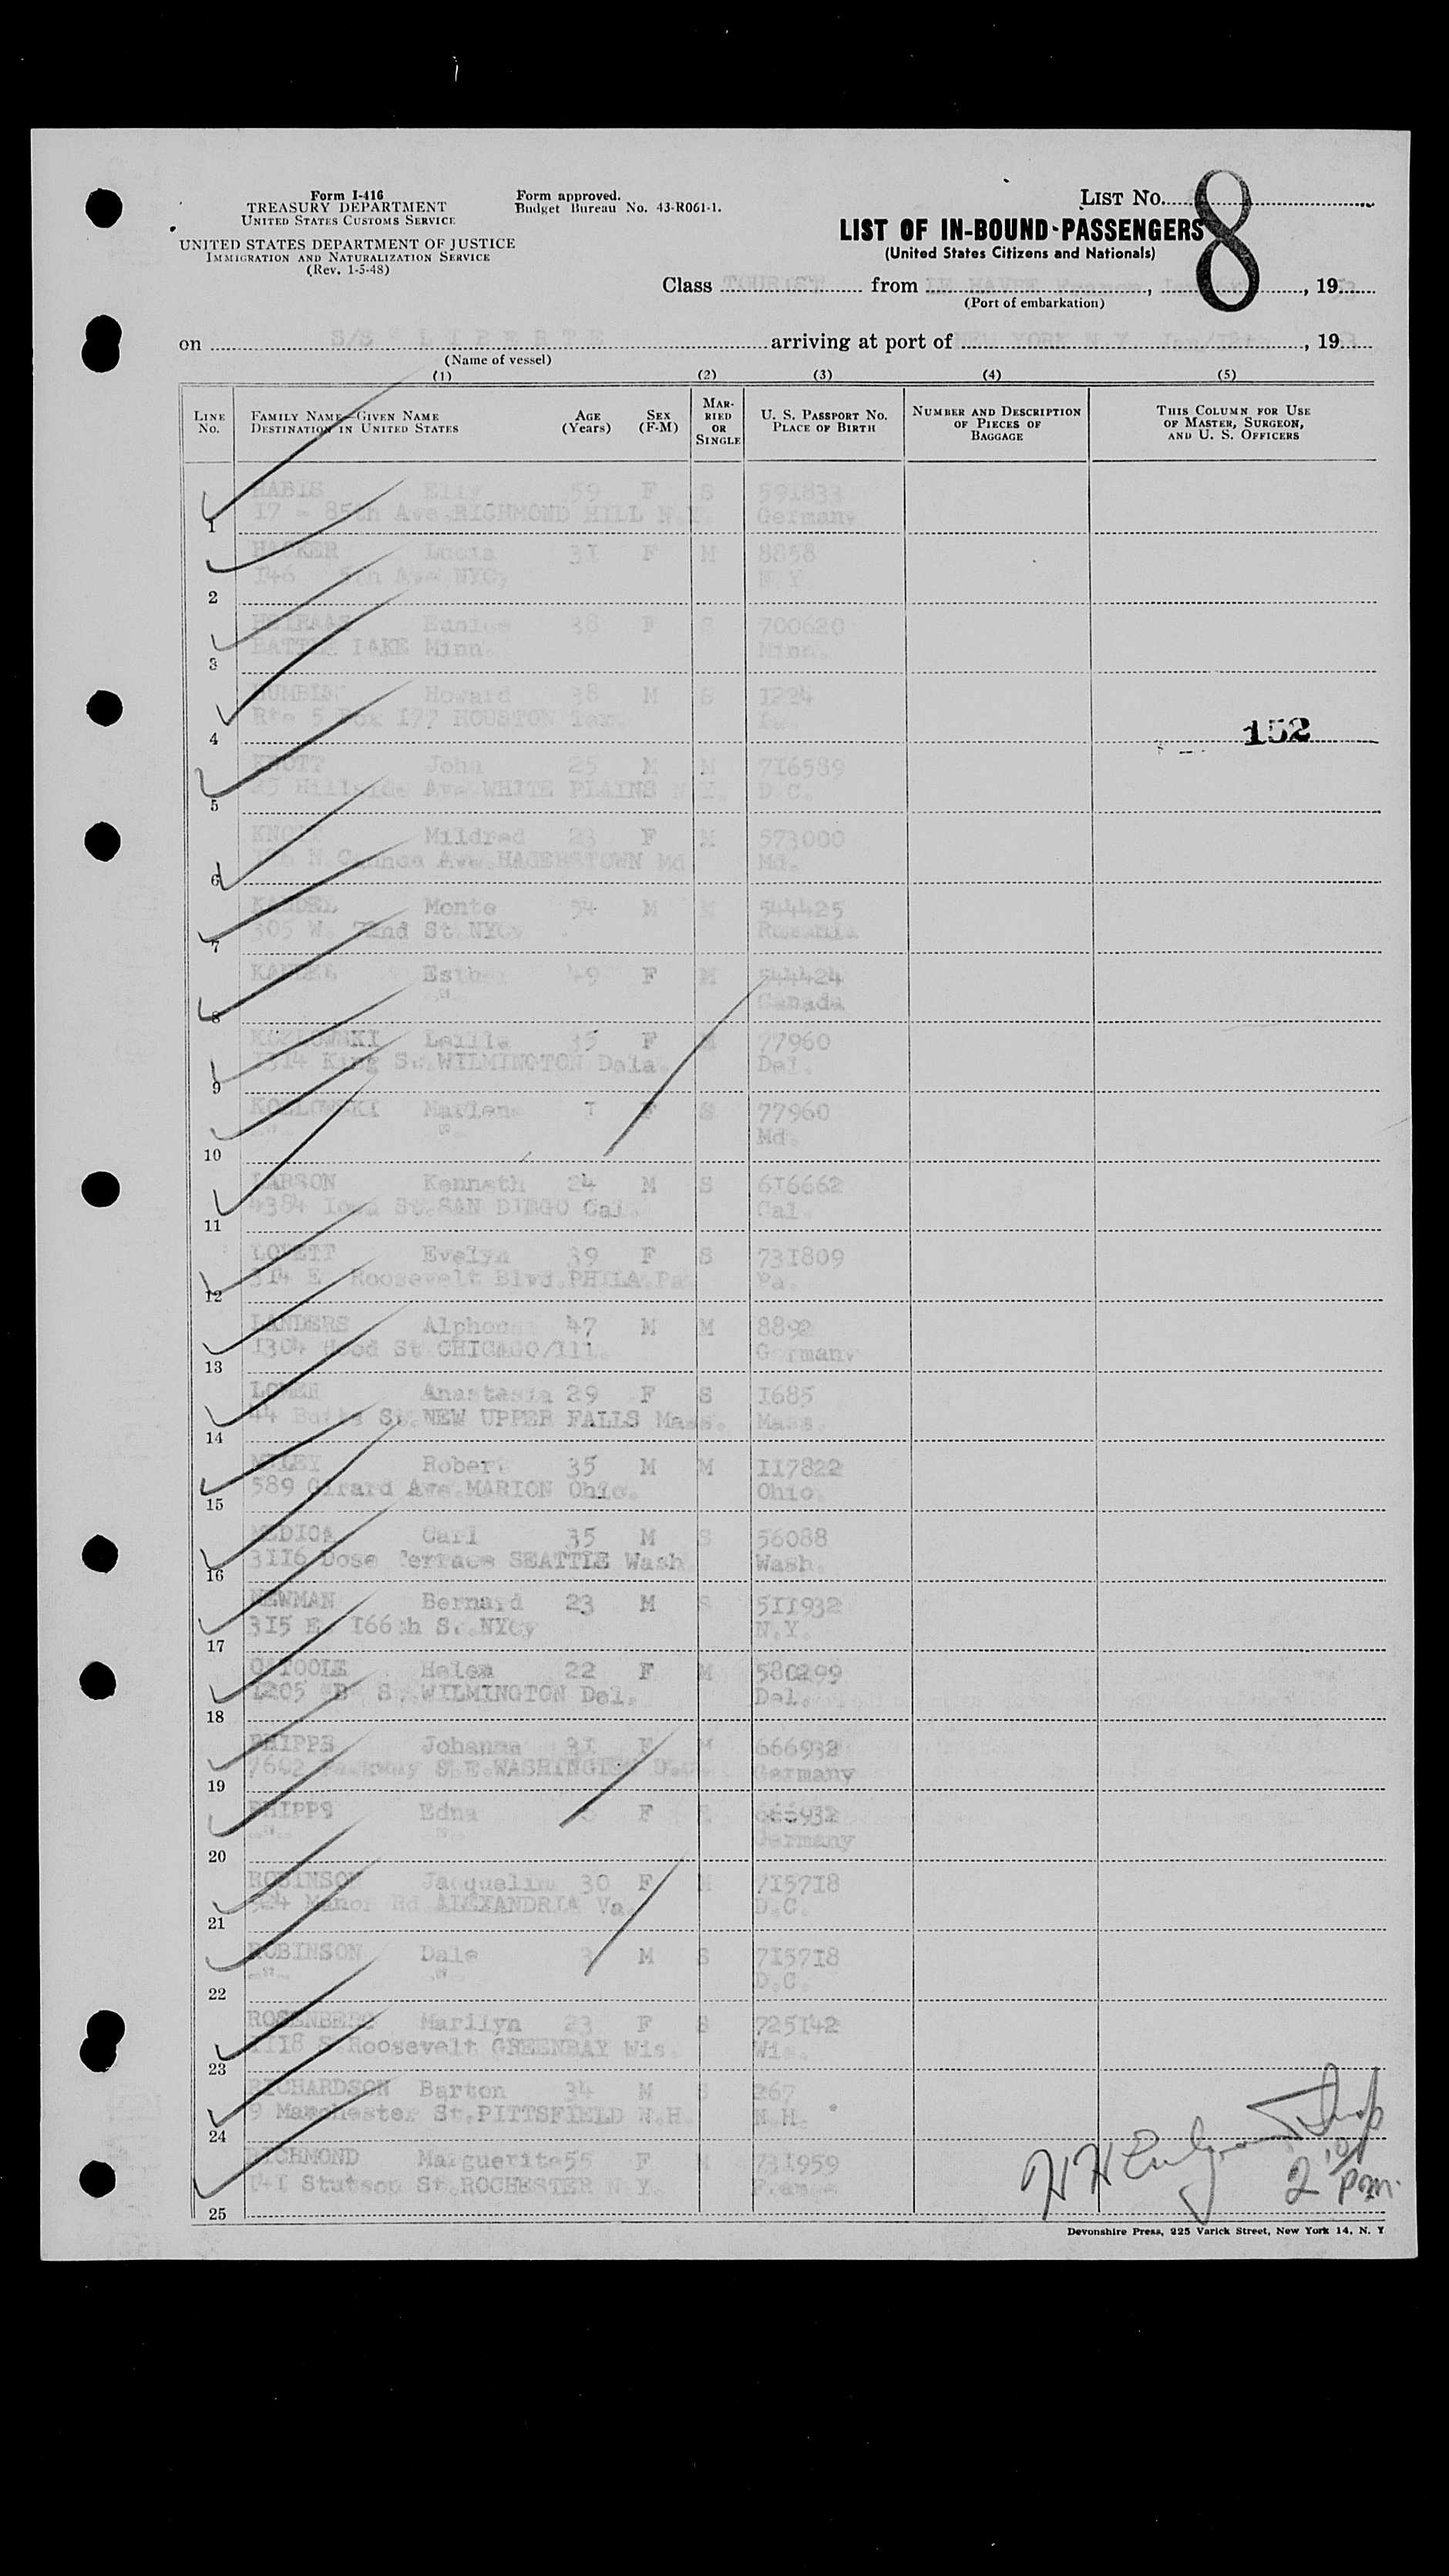 Form I-416
TREASURY DEPARTMENT
UNITED STATES CUSTOMS SERVICE
UNITED STATES DEPARTMENT OF JUSTICE
IMMIGRATION AND NATURALIZATION SERVICE
(Rev. 1-5-48)
Form approved.
Budget Bureau No. 43-R061-1.
LIST No. 8
LIST OF IN-BOUND PASSENGERS
(United States Citizens and Nationals)
Class TOURIST from LE HAVRE , 19
(Port of embarkation)
on S/S LIBERTE arriving at port of NEW YORK N.Y. , 19
(Name of vessel)
(1) (2) (3) (4) (5)
LINE No.
FAMILY NAME—GIVEN NAME DESTINATION IN UNITED STATES
AGE (Years)
SEX (F-M)
MARRIED OR SINGLE
U. S. PASSPORT NO. PLACE OF BIRTH
NUMBER AND DESCRIPTION OF PIECES OF BAGGAGE
THIS COLUMN FOR USE OF MASTER, SURGEON, AND U. S. OFFICERS
59 F S 591833
1 17 - 85th Ave.RICHMOND HILL N.Y. Germany
Lucia 31 F M 8858
2 146 5th Ave NYCy N Y
Eunice 38 F S 700620
3 BATTLE LAKE Minn. Minn.
Howard 38 M S 1224
4 Rte 5 Box 177 HOUSTON Tex.
152
KNOTT John 25 M M 716589
5 Hillside Ave WHITE PLAINS N.Y. D C.
KNOTT Mildred 23 F M 573000
6 Ave.HAGERSTOWN Md Md.
KANDEL Monte 54 M M 544425
7 305 W. 72nd St NYCy
KANDEL Esther 49 F M 544424
8 -"- Canada
KOZLOWSKI 35 F 77960
9 1314 King St.WILMINGTON Dela. Del.
KOZLOWSKI Marlene I F S 77960
10 -"- -"- Md.
LARSON Kenneth 24 M S 616662
11 4384 Iowa St.SAN DIEGO Cal. Cal.
LOVETT Evelyn 39 F S 731809
12 314 E Roosevelt Blvd.PHILA.Pa Pa.
LANDERS Alphons 47 M M 8892
13 1304 Wood St CHICAGO/Ill. Germany
Anastasia 29 F S 1685
14 44 St.NEW UPPER FALLS Mass. Mass.
Robert 35 M M 117822
15 589 Girard Ave.MARION Ohio. Ohio.
MEDICA Carl 35 M S 56088
16 3116 Dose Terrace SEATTLE Wash Wash.
NEWMAN Bernard 23 M S 511932
17 315 E. 166th St.NYCy N.Y.
O'TOOLE Helen 22 F M 580299
18 1205 "B" St.WILMINGTON Del. Del.
PHIPPS Johanna 31 F M 666932
19 S E.WASHINGTON D.C. Germany
PHIPPS Edna F 666932
20 -"- -"- Germany
ROBINSON Jacqueline 30 F M 715718
21 Manor Rd ALEXANDRIA Va. D.C.
ROBINSON Dale 3 M S 715718
22 -"- -"- D.C.
ROSENBERG Marilyn 23 F S 725142
23 1118 S.Roosevelt GREENBAY Wis. Wis.
RICHARDSON Barton 34 M S 267
24 9 Manchester St.PITTSFIELD N.H. N H.
RICHMOND Marguerite 55 F M 731959
25 141 Stutson St.ROCHESTER N Y.
2 10 p.m.
Devonshire Press, 225 Varick Street, New York 14, N. Y